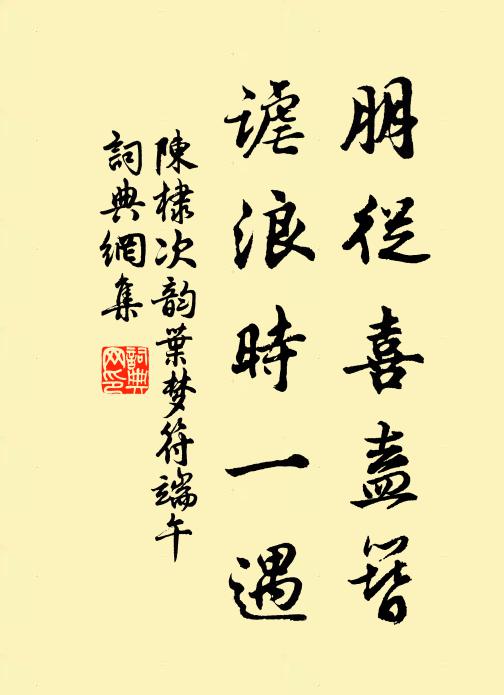 朋從喜盍簪
謔浪時一遇
陳棣次韵葉梦符端午
詞典網集
詞典网印